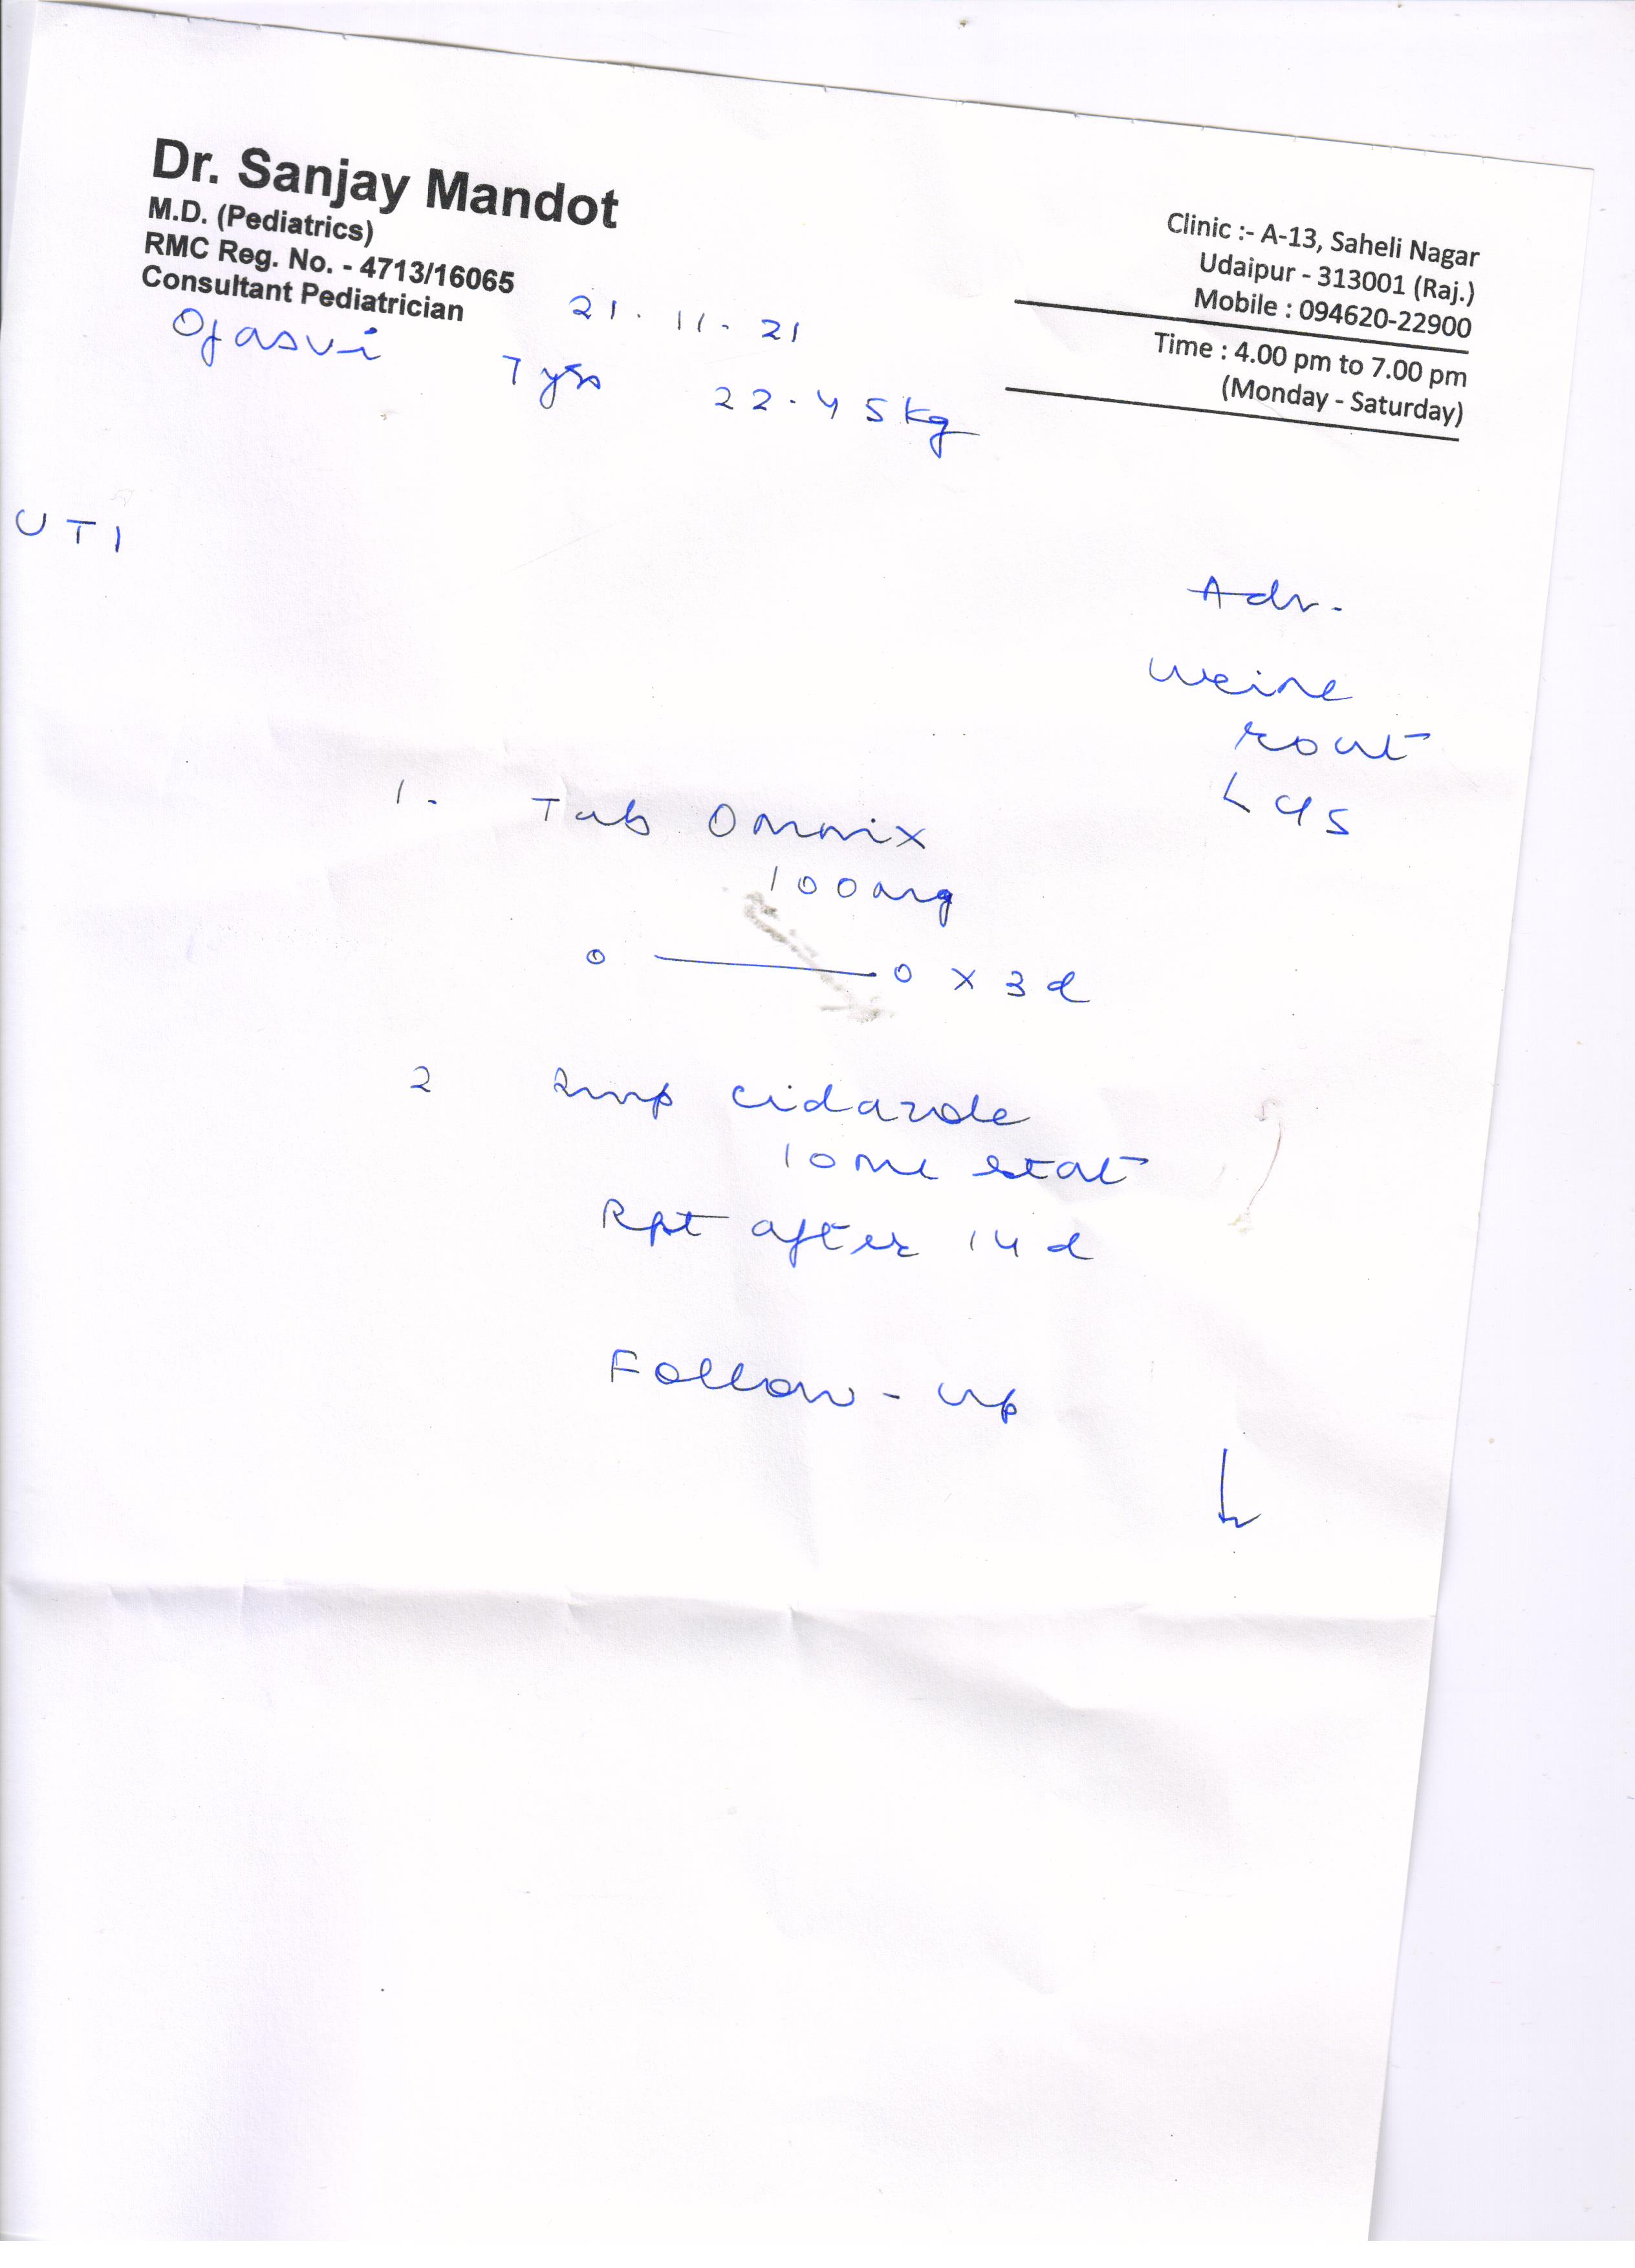 Dr. Sanjay Mandot
M.D. (Pediatrics)
RMC Reg. No. - 4713/16065
Consultant Pediatrician
Clinic :- A-13, Saheli Nagar
Udaipur - 313001 (Raj.)
Mobile : 094620-22900
Time : 4.00 pm to 7.00 pm
(Monday - Saturday)
21.11.21
Ojasvi 7 yrs 22.45 kg
UTI
Adv.
Urine
rout
< 4 5
1. Tab Omnix
100mg
0 — 0 x 3 d
2 cidazole
10ml stat
Rpt after 14 d
Follow-up